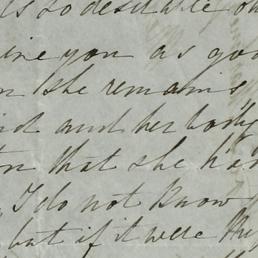 so desirable
you as
she remains
and her body
that she has
I do not know
but if it were the